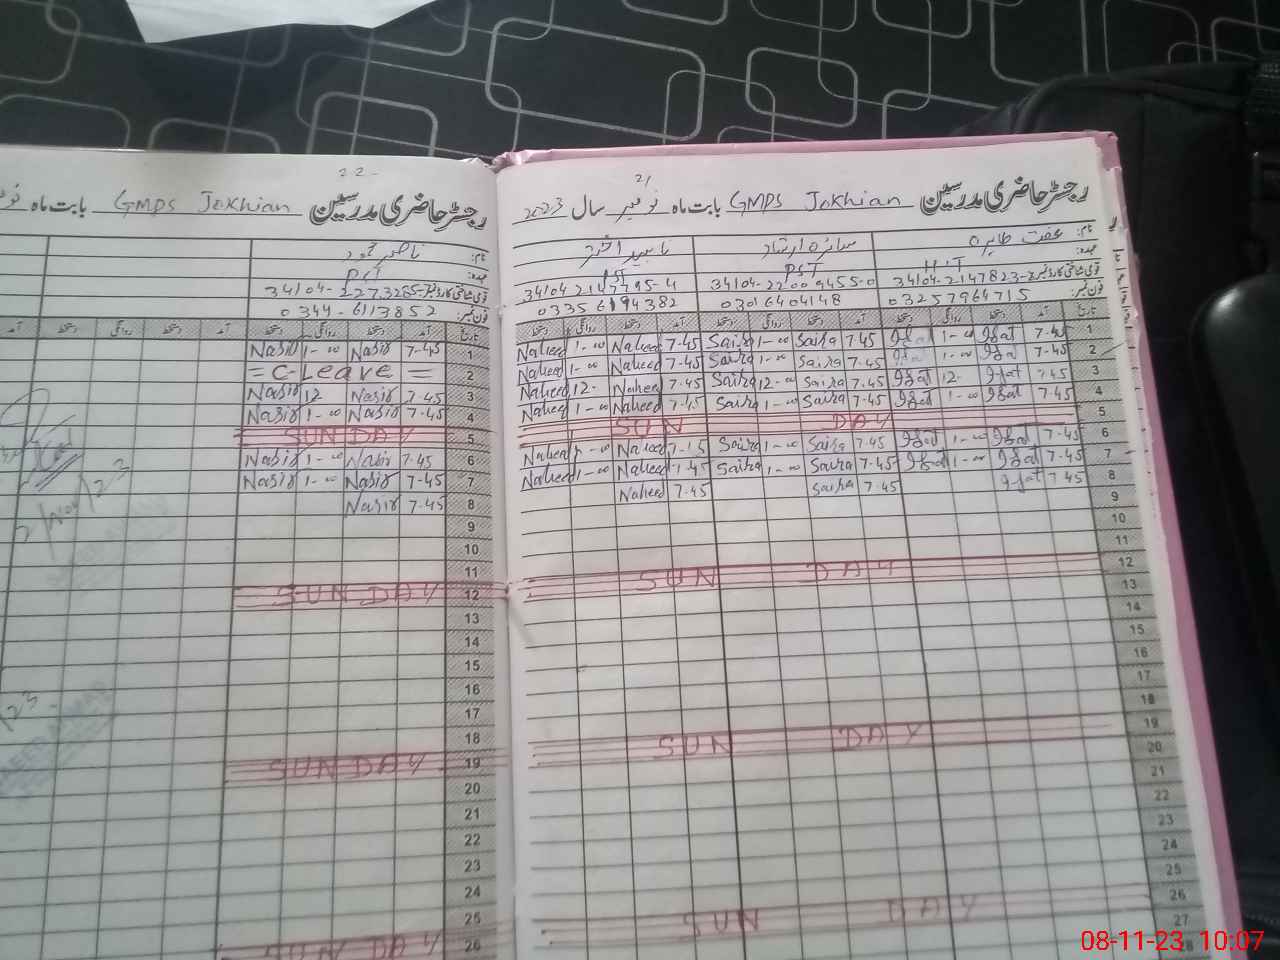 21
رجسٹر حاضری مدرسین GMPS Jokhian بابت ماہ نومبر سال 2023
نام: عفت طاہرہ سائرہ ارشاد ناہید اختر
عہدہ: PST PST
قومی شناختی کارڈ نمبر: 34104-2147823- 34104-22009455-0 34104 2147795-4
فون نمبر: 03257964715 03016404148 03356194382
تاریخ آمد دستخط روانگی دستخط آمد دستخط روانگی دستخط آمد دستخط روانگی دستخط
1 7-45 Ifat 1-00 Ifat 7-45 Saira 1-00 Saira 7-45 Naheed 1-00 Naheed
2 7-45 Ifat 1-00 Ifat 7-45 Saira 1-00 Saira 7-45 Naheed 1-00 Naheed
3 7-45 Ifat 12- Ifat 7-45 Saira 12-00 Saira 7-45 Naheed 12- Naheed
4 7-45 Ifat 1-00 Ifat 7-45 Saira 1-00 Saira 7-45 Naheed 1-00 Naheed
5 SUN DAY
6 7-45 Ifat 1-00 Ifat 7-45 Saira 1-00 Saira 7-45 Naheed 1-00 Naheed
7 7-45 Ifat 1-00 Ifat 7-45 Saira 1-00 Saira 7-45 Naheed 1-00 Naheed
8 7-45 Ifat 7-45 Saira 7-45 Naheed
9
10
11
12 SUN DAY
13
14
15
16
17
18
19 SUN DAY
20
21
22
23
24
25
26 SUN DAY
27
28
22-
رجسٹر حاضری مدرسین GMPS Jokhian بابت ماہ
نام: ناصر محمود
عہدہ: PST
قومی شناختی کارڈ نمبر: 34104-2273285-
فون نمبر: 0344-6113852
تاریخ آمد دستخط روانگی دستخط آمد دستخط روانگی دستخط آمد
1 7-45 Nasir 1-00 Nasir
2 = C-Leave =
3 7-45 Nasir 12 Nasir
4 7-45 Nasir 1-00 Nasir
5 SUN DAY
6 7-45 Nasir 1-00 Nasir
7 7-45 Nasir 1-00 Nasir
8 7-45 Nasir
9
10
11
12 SUN DAY
13
14
15
16
17
18
19 SUN DAY
20
21
22
23
24
25
26 SUN DAY
08-11-23 10:07